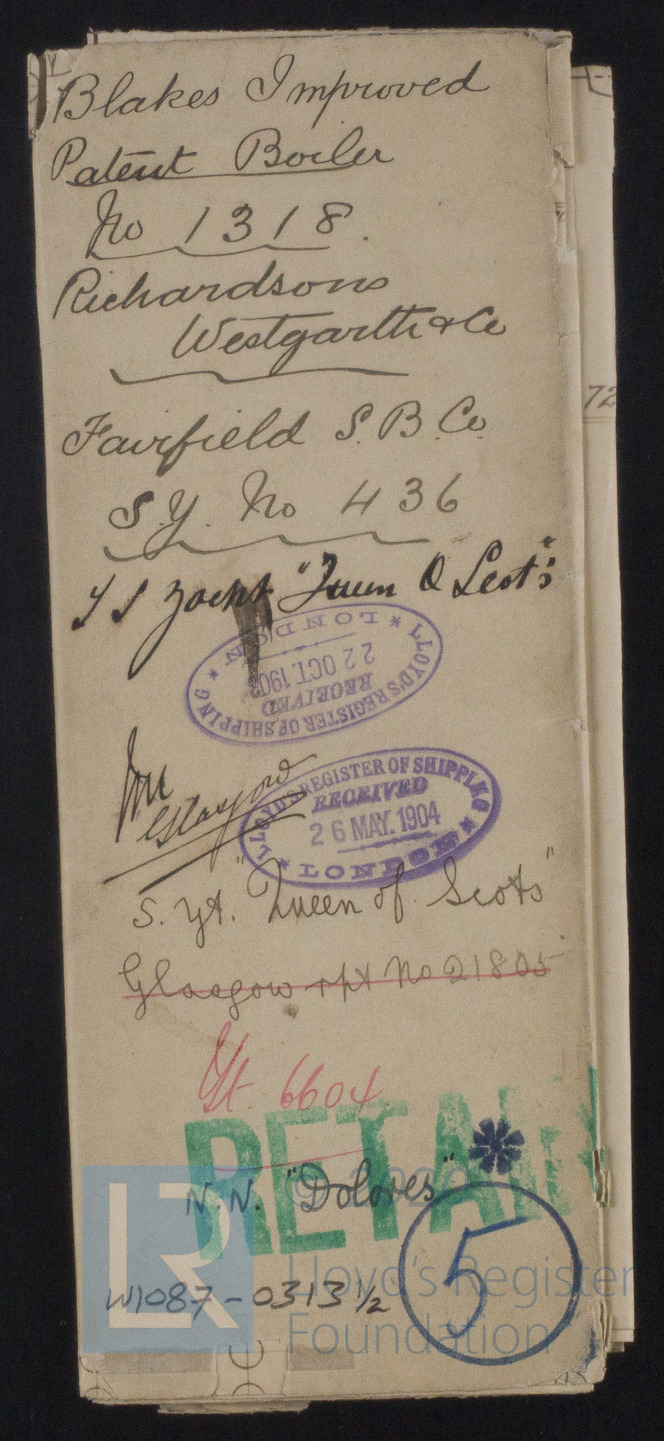 Blakes Improved
Patent Boiler
No 1318.
Richardsons
Westgarth & Co
72
Fairfield S.B. Co
S.Y. No 436
Yacht "Queen O Scots"
LLOYD'S REGISTER OF SHIPPING
RECEIVED
22 OCT. 1903
* LONDON *
Glasgow
LLOYD'S REGISTER OF SHIPPING
RECEIVED
26 MAY. 1904
* LONDON *
S. Yt. "Queen of Scots"
Glasgow rpt No 21805
6604
RETAIN
N.N. "Dolores"
5
LR
Lloyd's Register
Foundation
W1087-0313 1/2